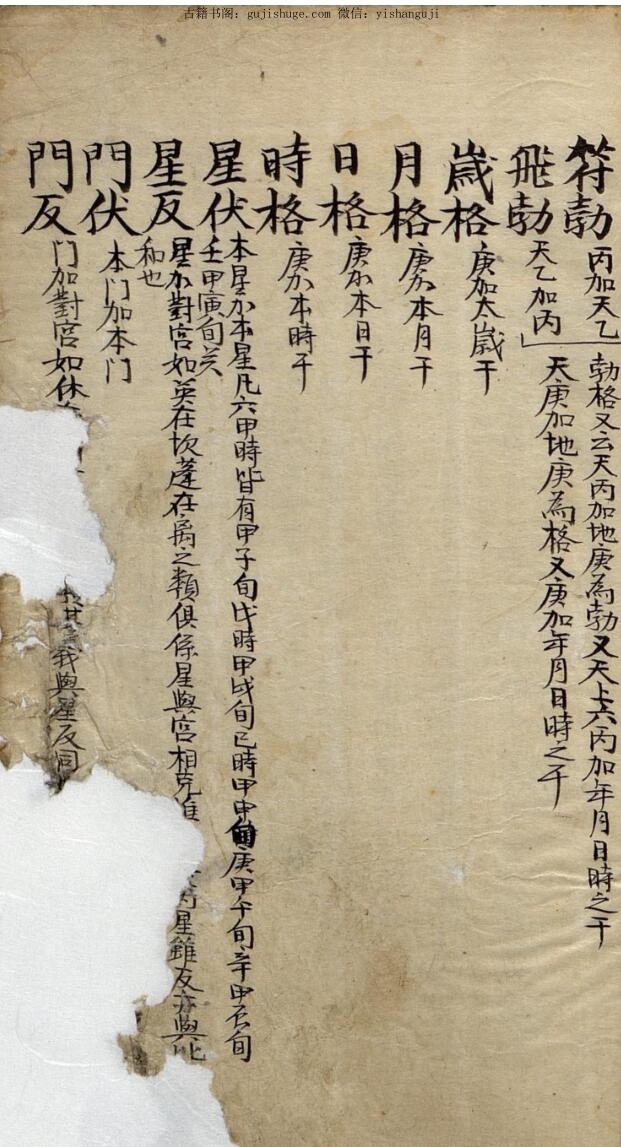 古籍书阁：gujishuge.com 微信：yishanguji
符勃 丙加天乙 勃格又云天丙加地庚為勃又天上六丙加年月日時之干
飛勃 天乙加丙 天庚加地庚為格又庚加年月日時之干
歲格 庚加太歲干
月格 庚加本月干
日格 庚加本日干
時格 庚加本時干
星伏 本星加本星凡六甲時皆有甲子旬戊時甲戌旬己時甲申旬庚甲午旬辛甲辰旬
壬甲寅旬癸
星反 星加對宮如英在坎蓬在離之類俱係星與宮相克 星雖反亦與
和也
門伏 本門加本門
門反 門加對宮如休 其 我與星反同